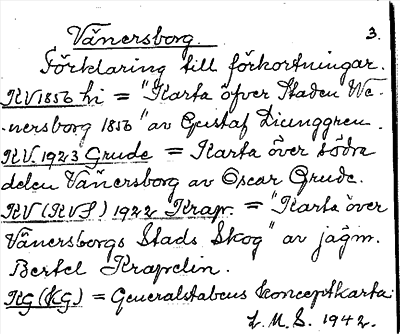 Vänersborg. 3.
Förklaring till förkortningar.
KV 1856 hi = "Karta öfver Staden We-
nersborg 1856" av Gustaf Ljunggren.
KV. 1923 Grude = Karta över södra
delen Vänersborg av Oscar Grude.
KV (KVS) 1922 Krap. = "Karta över
Vänersborgs Stads Skog" av jägm.
Bertel Krapelin.
KG (KG) = Generalstabens Konceptkarta
L. M. S. 1942.